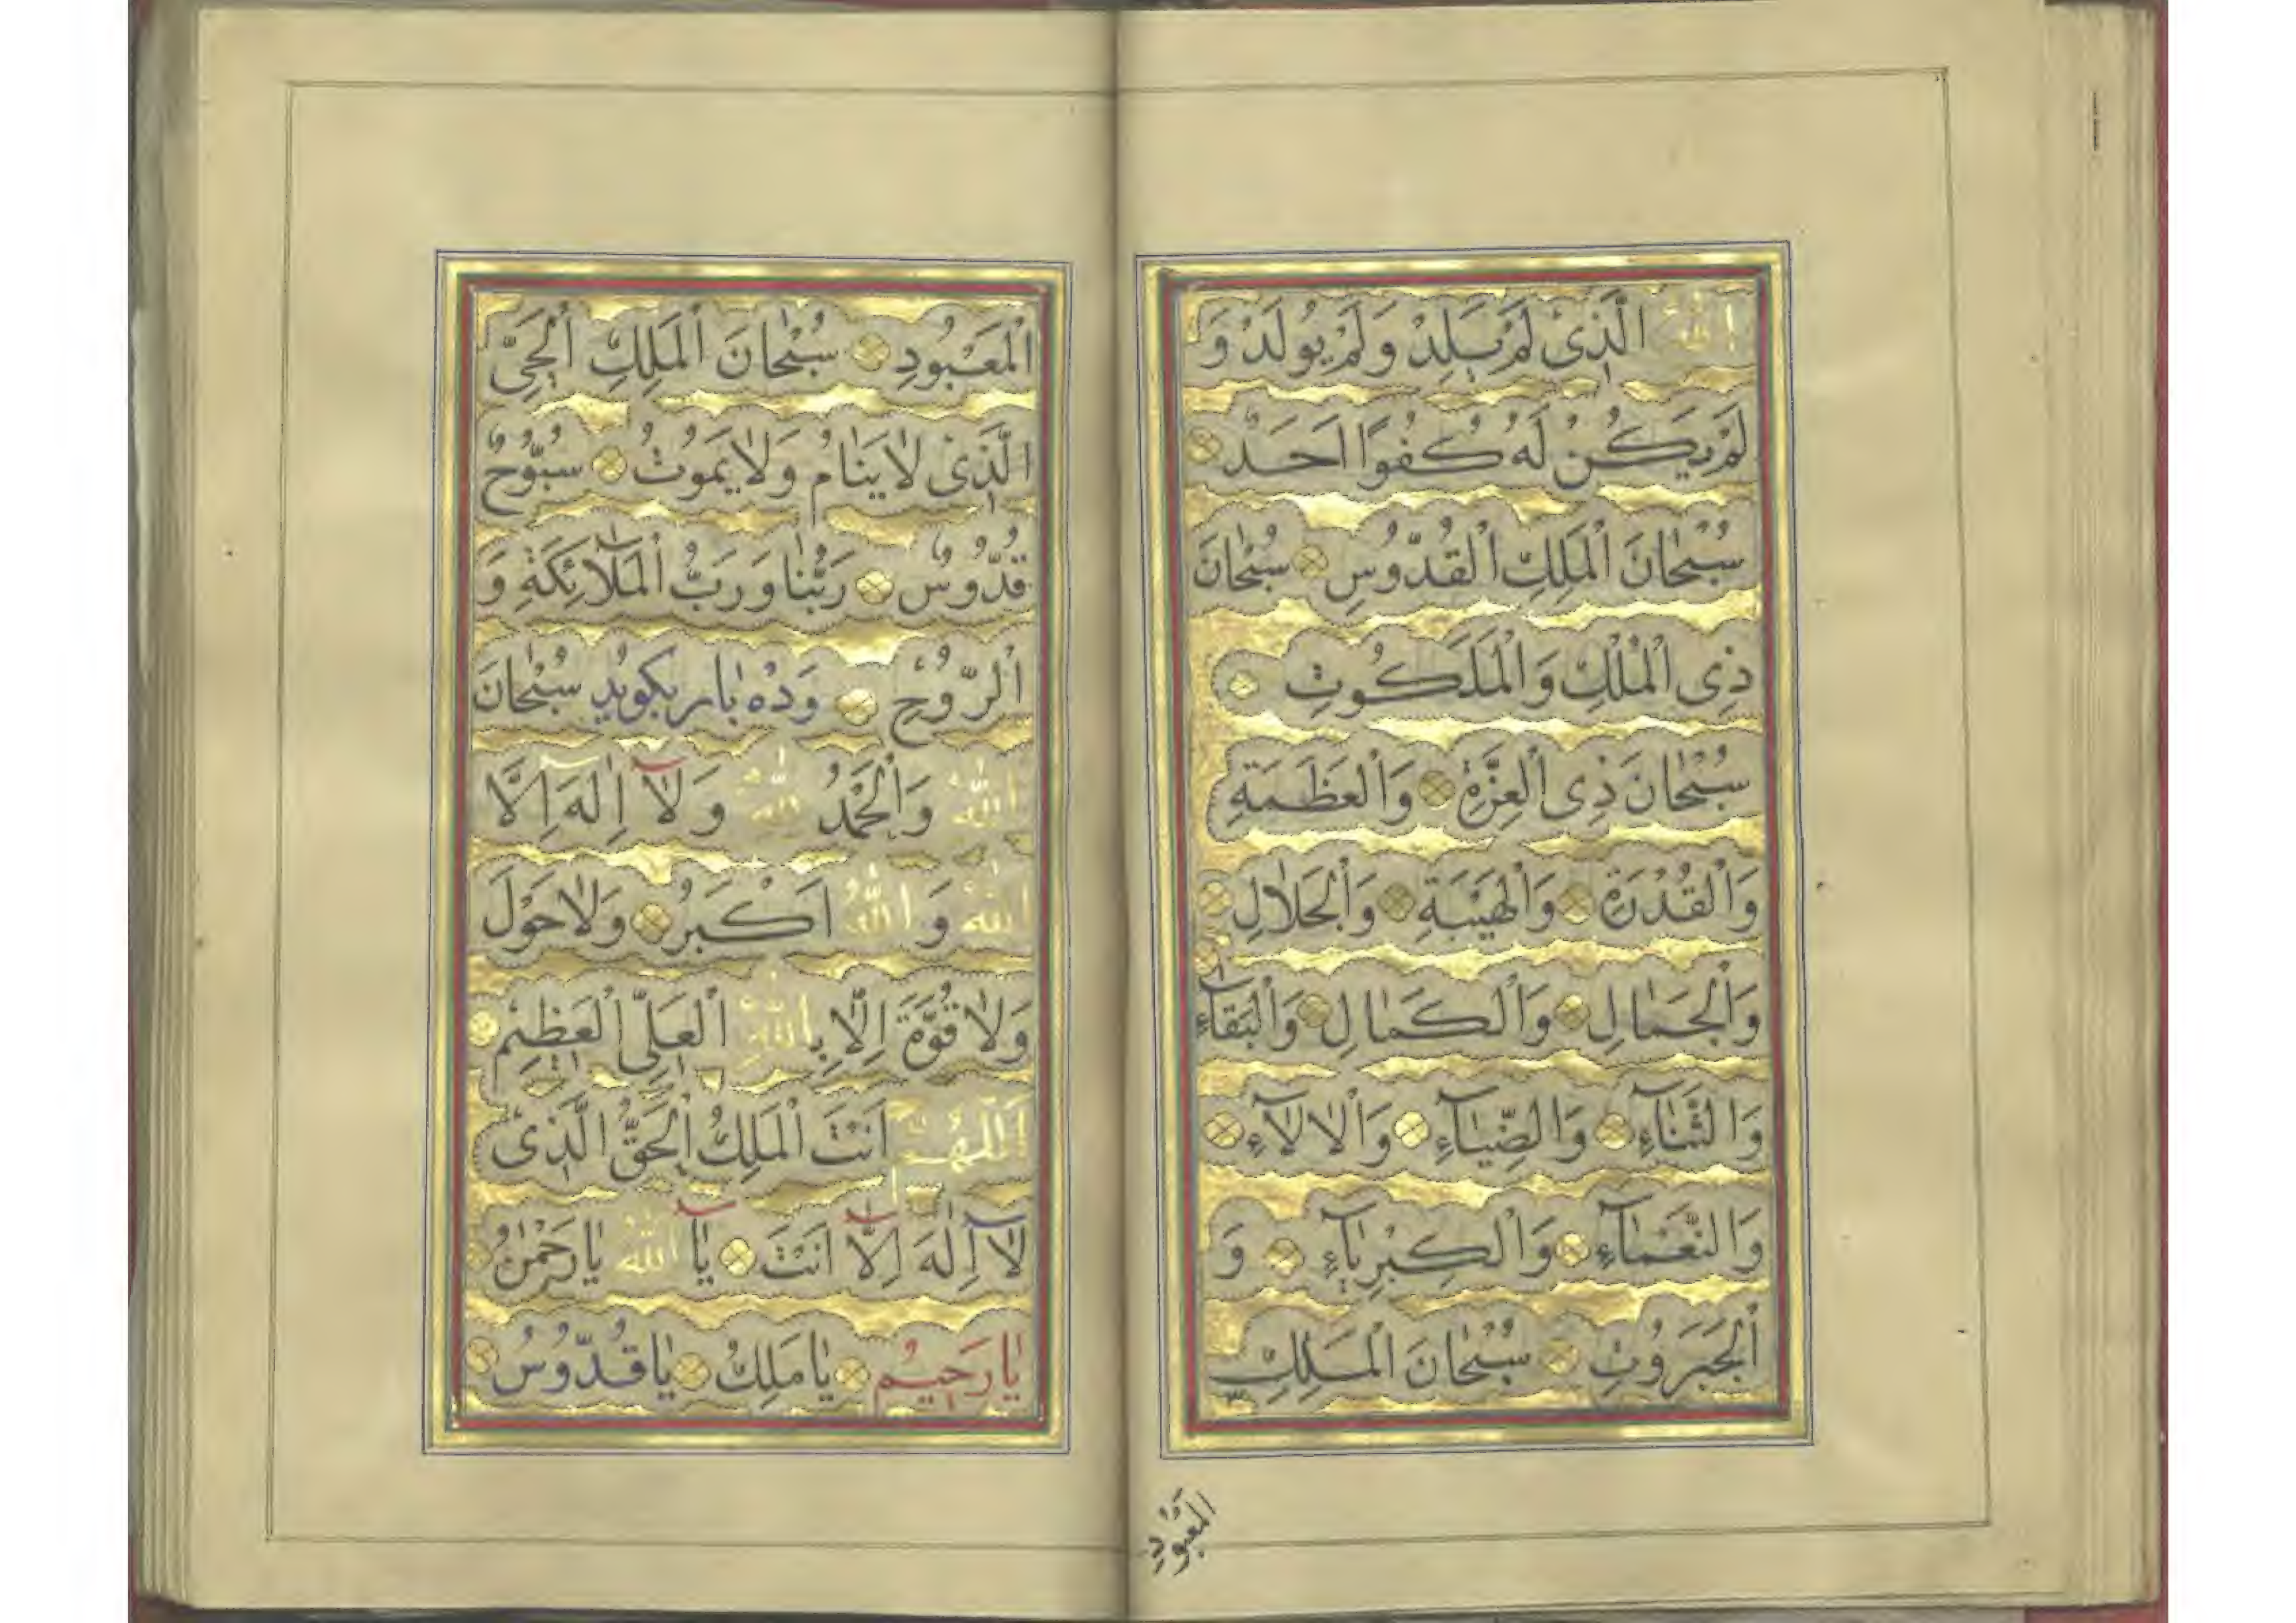 اَللّٰهُ الَّذِیْ لَمْ یَلِدْ وَلَمْ یُولَدْ وَ
لَمْ یَكُنْ لَهُ كُفُوًا اَحَدٌ
سُبْحٰانَ الْمَلِكِ الْقُدُّوُسِ سُبْحٰانَ
ذِی الْمُلْكِ وَالْمَلَكُوتِ
سُبْحٰانَ ذِی الْعِزَّةِ وَالْعَظَمَةِ
وَالْقُدْرَةِ وَالْهَیْبَةِ وَالْجَلٰالِ
وَالْجَمٰالِ وَالْكَمٰالِ وَالْبَقٰآءِ
وَالثَّنٰآءِ وَالضِّیٰآءِ وَالْاٰلآءِ
وَالنَّعْمٰآءِ وَالْكِبْرِیٰآءِ وَ
الْجَبَرُوتِ سُبْحٰانَ الْمَلِكِ
۳
الْمَعْبُودِ
الْمَعْبُودِ سُبْحٰانَ الْمَلِكِ الْحَیِّ
الَّذِیْ لٰا یَنٰامُ وَلٰا یَمُوتُ سُبُّوُحٌ
قُدُّوُسٌ رَبُّنٰا وَرَبُّ الْمَلٰآئِكَةِ وَ
الرُّوُحِ وَدُه بٰار بكویُد سُبْحٰانَ
اللّٰهِ وَالْحَمْدُ لِلّٰهِ وَلٰآ اِلٰهَ اِلَّا
اللّٰهُ وَاللّٰهُ اَكْبَرُ وَلٰا حَوْلَ
وَلٰا قُوَّةَ اِلَّا بِاللّٰهِ الْعَلِیِّ الْعَظِیْمِ
اَللّٰهُمَّ اَنْتَ الْمَلِكُ الْحَقُّ الَّذِیْ
لٰآ اِلٰهَ اِلَّآ اَنْتَ یٰآ اَللّٰهُ یٰا رَحْمٰنُ
یٰا رَحِیْمُ یٰا مَلِكُ یٰا قُدُّوُسُ